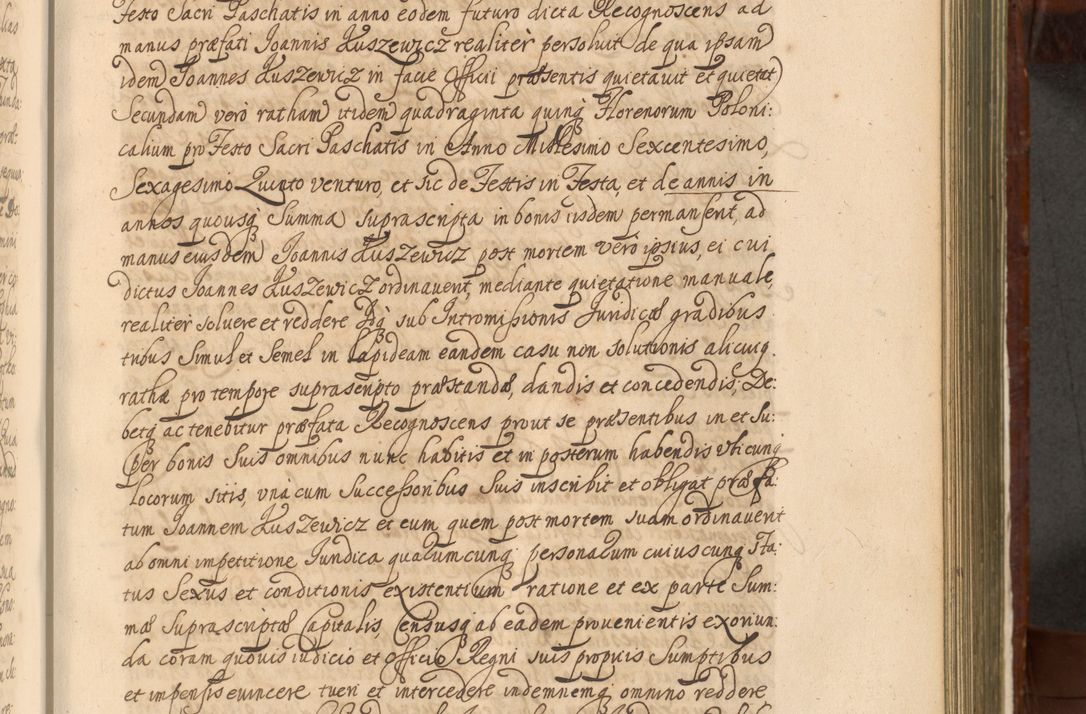 Festo Sacri Paschatis in anno eodem futuro dicta Recognoscens ad
manus præfati Joannis Kuszewicz realitèr persoluit de qua ipsam
idem Joannes Kuszewicz in facie Officii præsentis quietauit et quietat
Secundam verò ratham itidem quadraginta quinq Florenorum Poloni:
calium pro Festo Sacri Paschatis in Anno Millesimo Sexcentesimo,
Sexagesimo Quinto venturo, et sic de Festis in Festa, et de annis in
annos quousq Summa suprascripta in bonis iisdem permanserit, ad
manus eiusdem Joannis Kuszewicz post mortem verò ipsius, ei cui
dictus Joannes Kuszewicz ordinauerit, mediante quietatione manuale,
realiter soluere et reddere Idq sub Intromissionis Juridicæ gradibus
tribus Simul et Semel in lapideam eandem casu non solutionis alicuiq.
rathæ pro tempore suprascripto præstandæ, dandis et concedendis, De:
betq ac tenebitur præfata Recognoscens prout se præsentibus in et Su:
per bonis Suis omnibus nunc habitis et in posterum habendis vbicunq
locorum sitis, vnà cum Successoribus Suis inscribit et obligat præfa:
tum Joannem Kuszewicz et eum quem post mortem suam ordinauerit
ab omni impetitione Juridica qualumcunq personalum cuiuscunq Sta:
tus Sexus et conditionis existentium ratione et ex parte Sum:
mæ Suprascriptæ Capitalis Censusq ab eadem prouenientis exoriun:
da coram quouis iudicio et Officio Regni suis propriis Sumptibus
et impensis euincere tueri et intercedere indemnemq omnino reddere